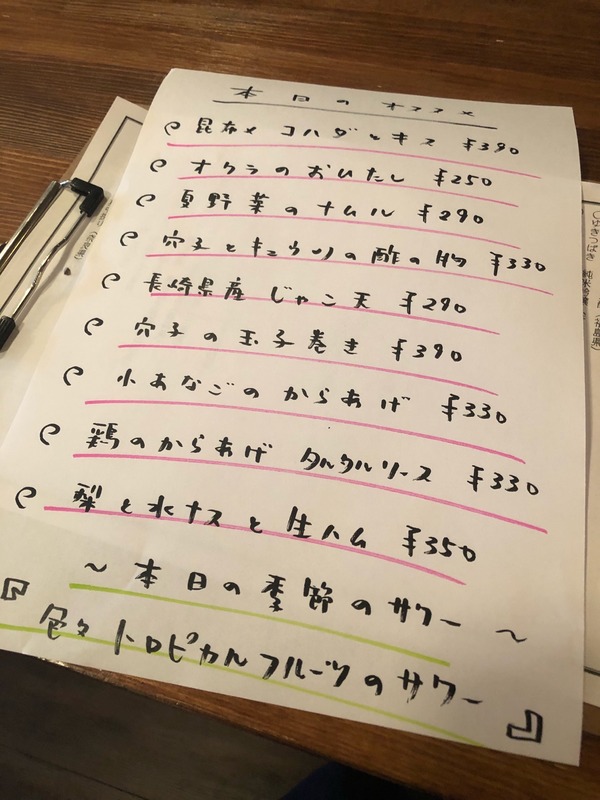 本日のオススメ
昆布〆 コハダとキス ¥390
オクラのおひたし ¥250
夏野菜のナムル ¥290
穴子とキュウリの酢の物 ¥330
長崎県産 じゃこ天 ¥290
穴子の玉子巻き ¥390
小あなごのからあげ ¥330
鶏のからあげ タルタルソース ¥330
梨と水ナスと生ハム ¥350
〜本日の季節のサワー〜
『色々トロピカルフルーツのサワー』